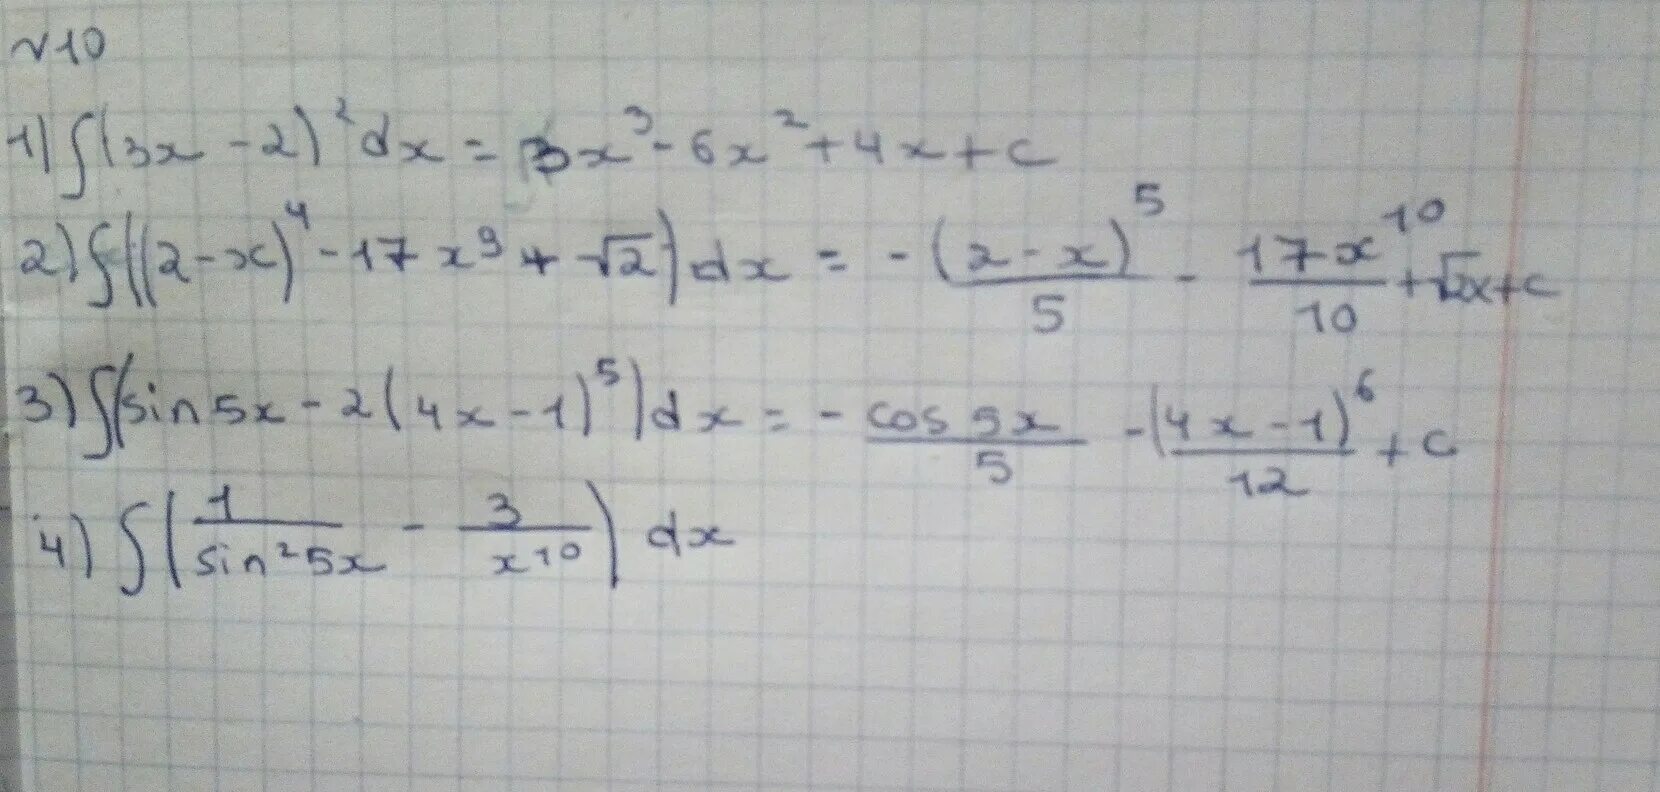 №10
1) ∫(3x - 2)² dx = 3x³ - 6x² + 4x + c
2) ∫((2 - x)⁴ - 17x⁹ + √2) dx = - (2 - x)⁵/5 - 17x¹⁰/10 + √2x + c
3) ∫(sin5x - 2(4x - 1)⁵) dx = - cos5x/5 - (4x - 1)⁶/12 + c
4) ∫(1/sin²5x - 3/x¹⁰) dx